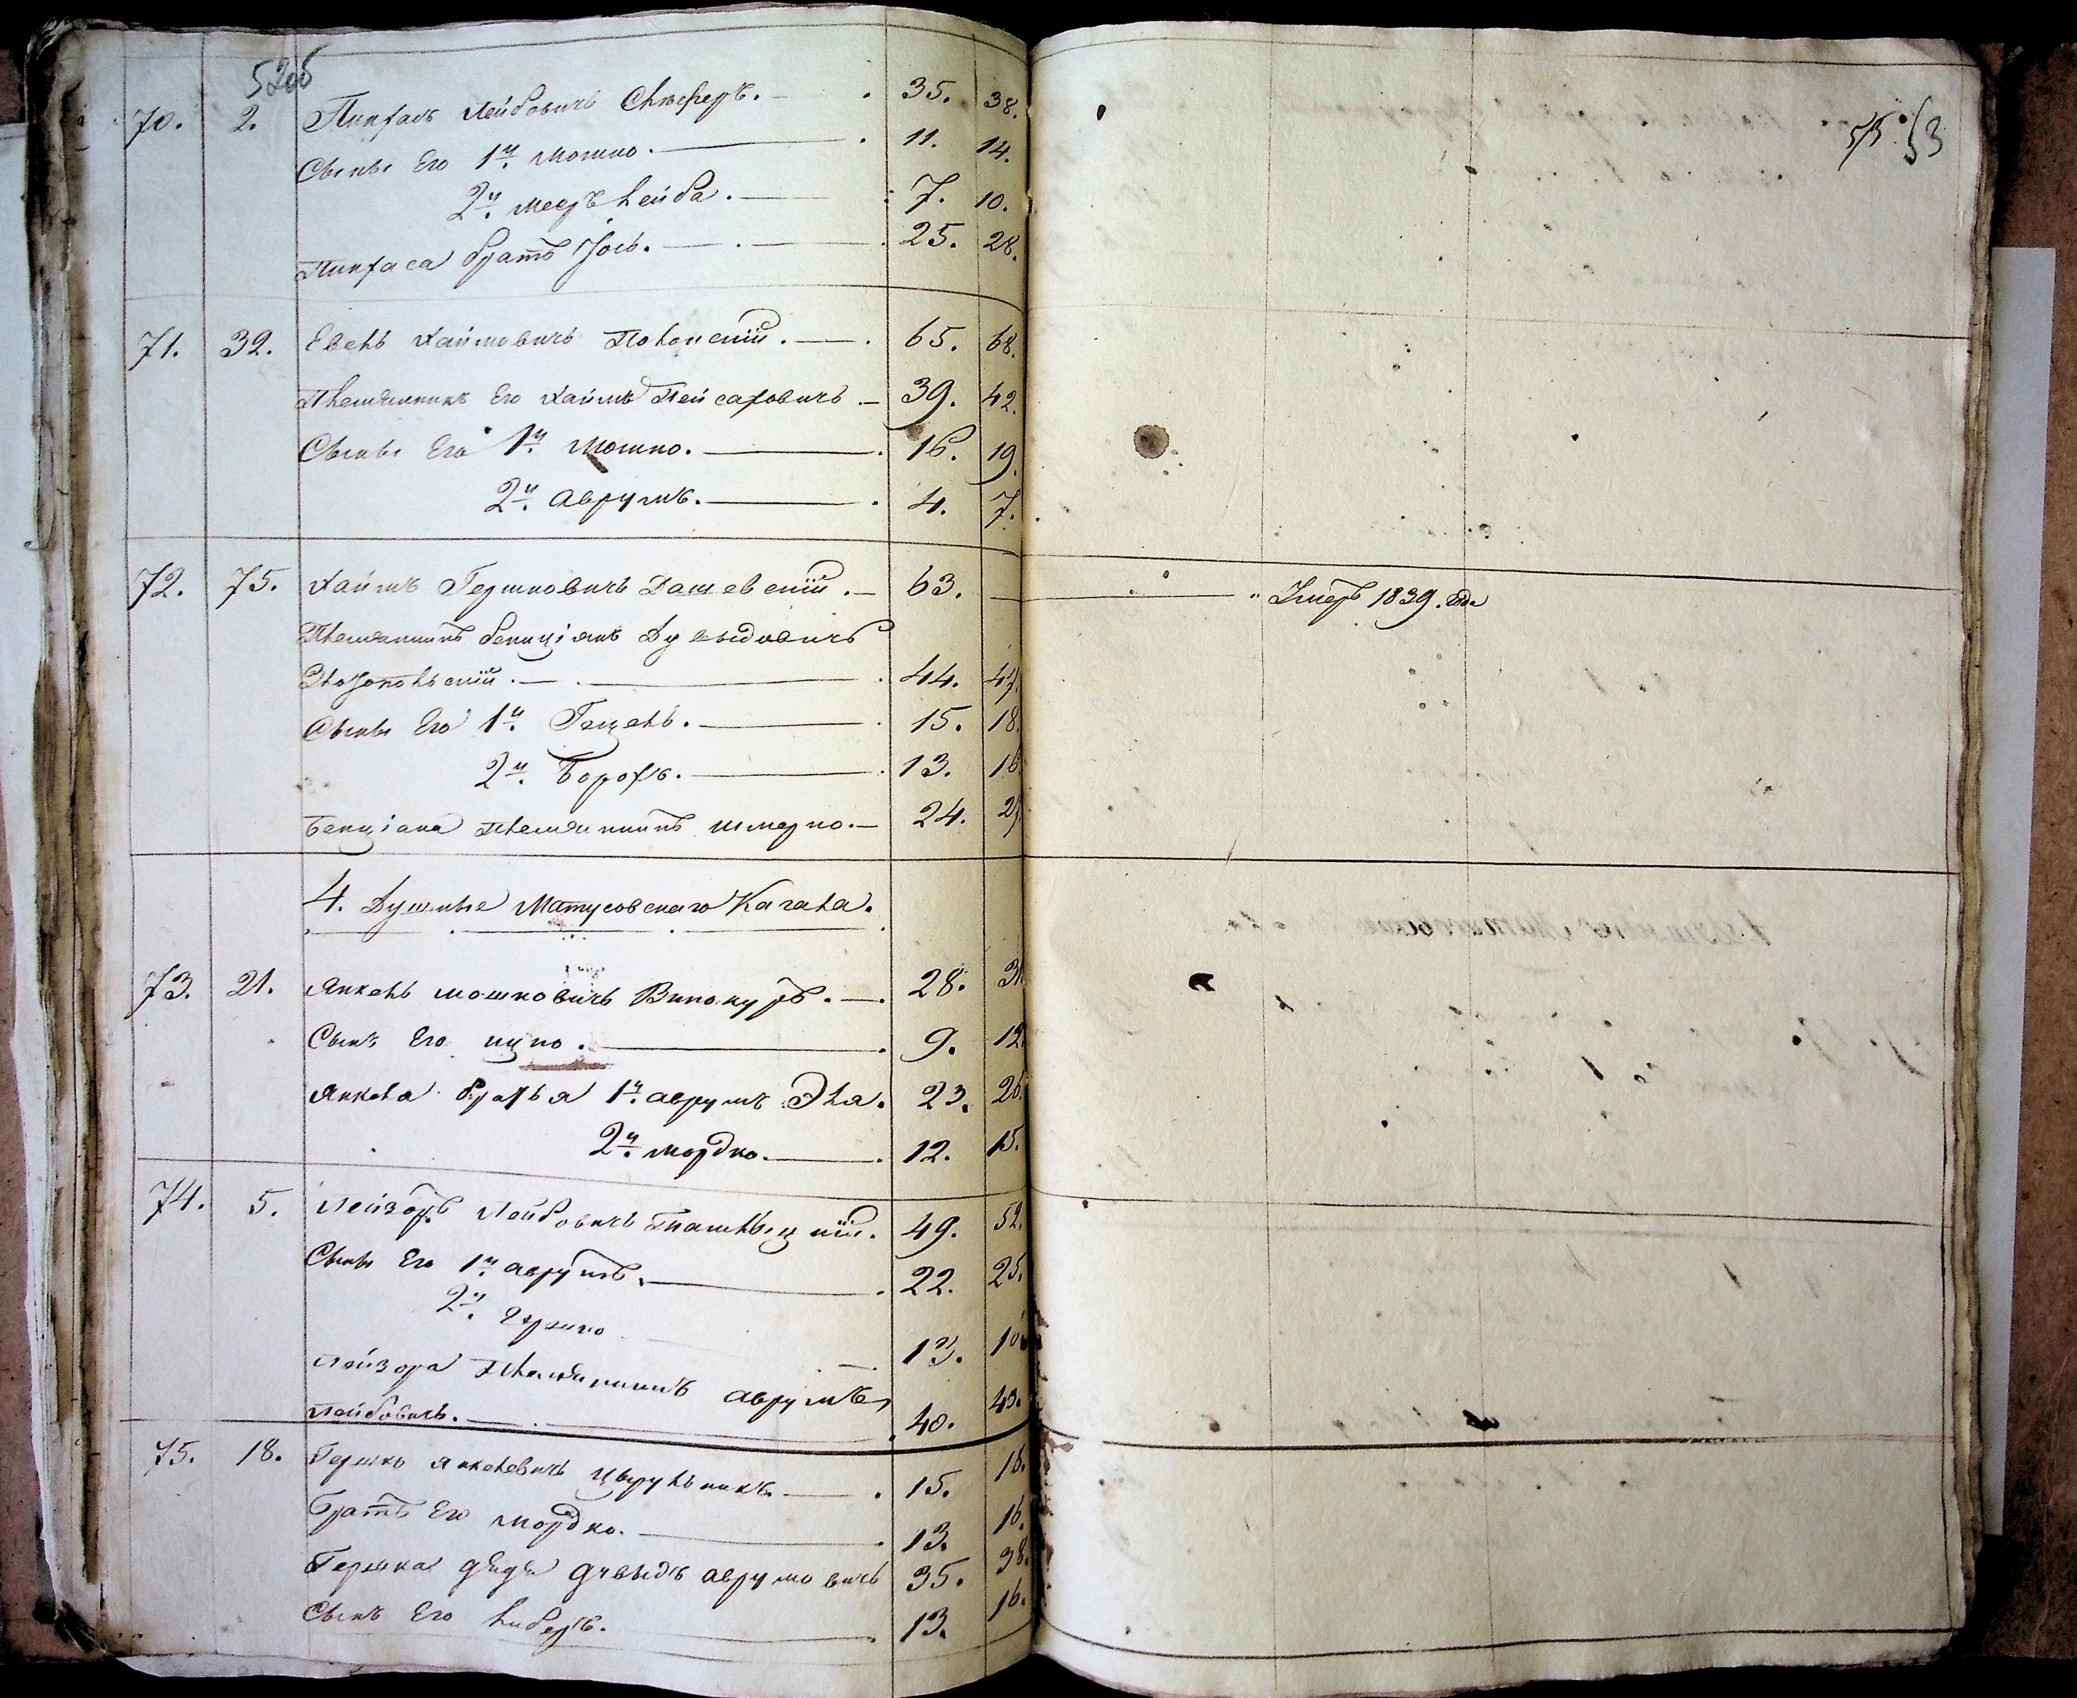 52об
70. 2. Пинхасъ Лейбовичъ Склеферъ. 35. 38.
Сыны Его 1й. Мошко. 11. 14.
2й. Мееръ Лейба. 7. 10.
Пинхаса братъ Іось. 25. 28.
71. 32. Евель Хаимовичъ Полонскій. 65. 68.
Племянникъ Его Хаимъ Пейсаховичъ 39. 42.
Сыны Его 1й. Мошко. 16. 19.
2й. Аврумъ. 4. 7.
72. 75. Хаимъ Гершковичъ Дашевскій. 63. Умеръ 1839. Года
Племянникъ Бенціянъ Дувыдовичъ
44. 47.
Сыны Его 1й. Гецель. 15. 18.
2й. Борохъ. 13. 16
Бенціана Племянникъ Шмерко. 24. 27.
4. Душные Матусовскаго Кагала.
73. 21. Янкель Мошковичъ Винокуръ. 28. 31
Сынъ Его Ицко. 9. 12.
Янкеля братья 1й. Аврумъ Эля. 23. 26.
2й. Мордко. 12. 15.
74. 5. Лейзоръ Лейбовичъ 49. 52.
Сыны Его 1й. Аврумъ. 22. 25.
2й. Гершко 13. 16
Лейзора Племянникъ Аврумъ
Лейбовичъ. 40. 43.
75. 18. Гершко Янкелевичъ Цырульникъ. 15. 18.
Братъ Его Мордко. 13. 16.
Гершка дядя Дувыдъ Аврумовичъ 35. 38.
Сынъ Его Либеръ. 13. 16.
53